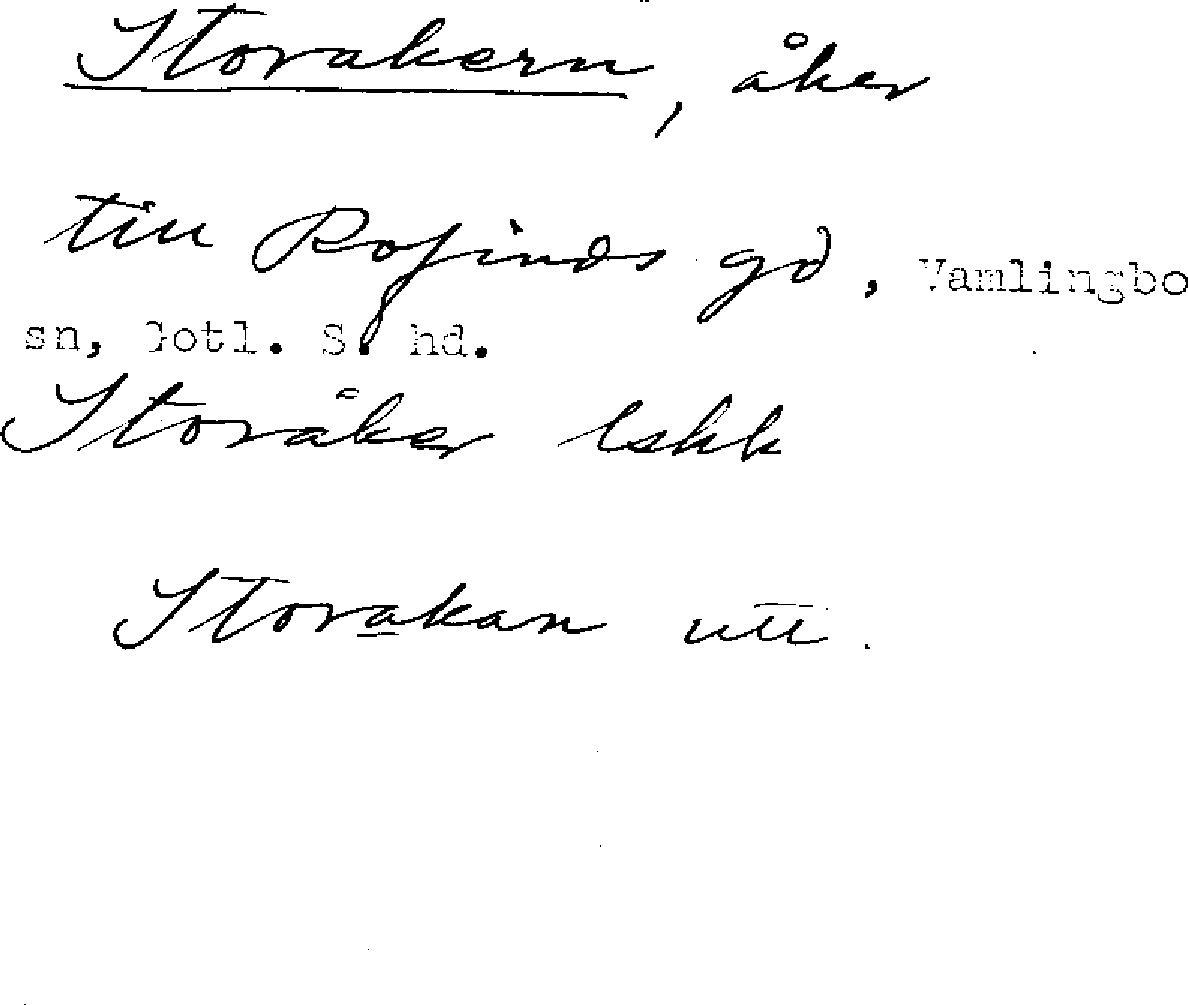 Storakern, åker
till Rofinds gd, Vamlingbo
sn, Gotl. S. hd.
Storåker lskk
Storakan utt.